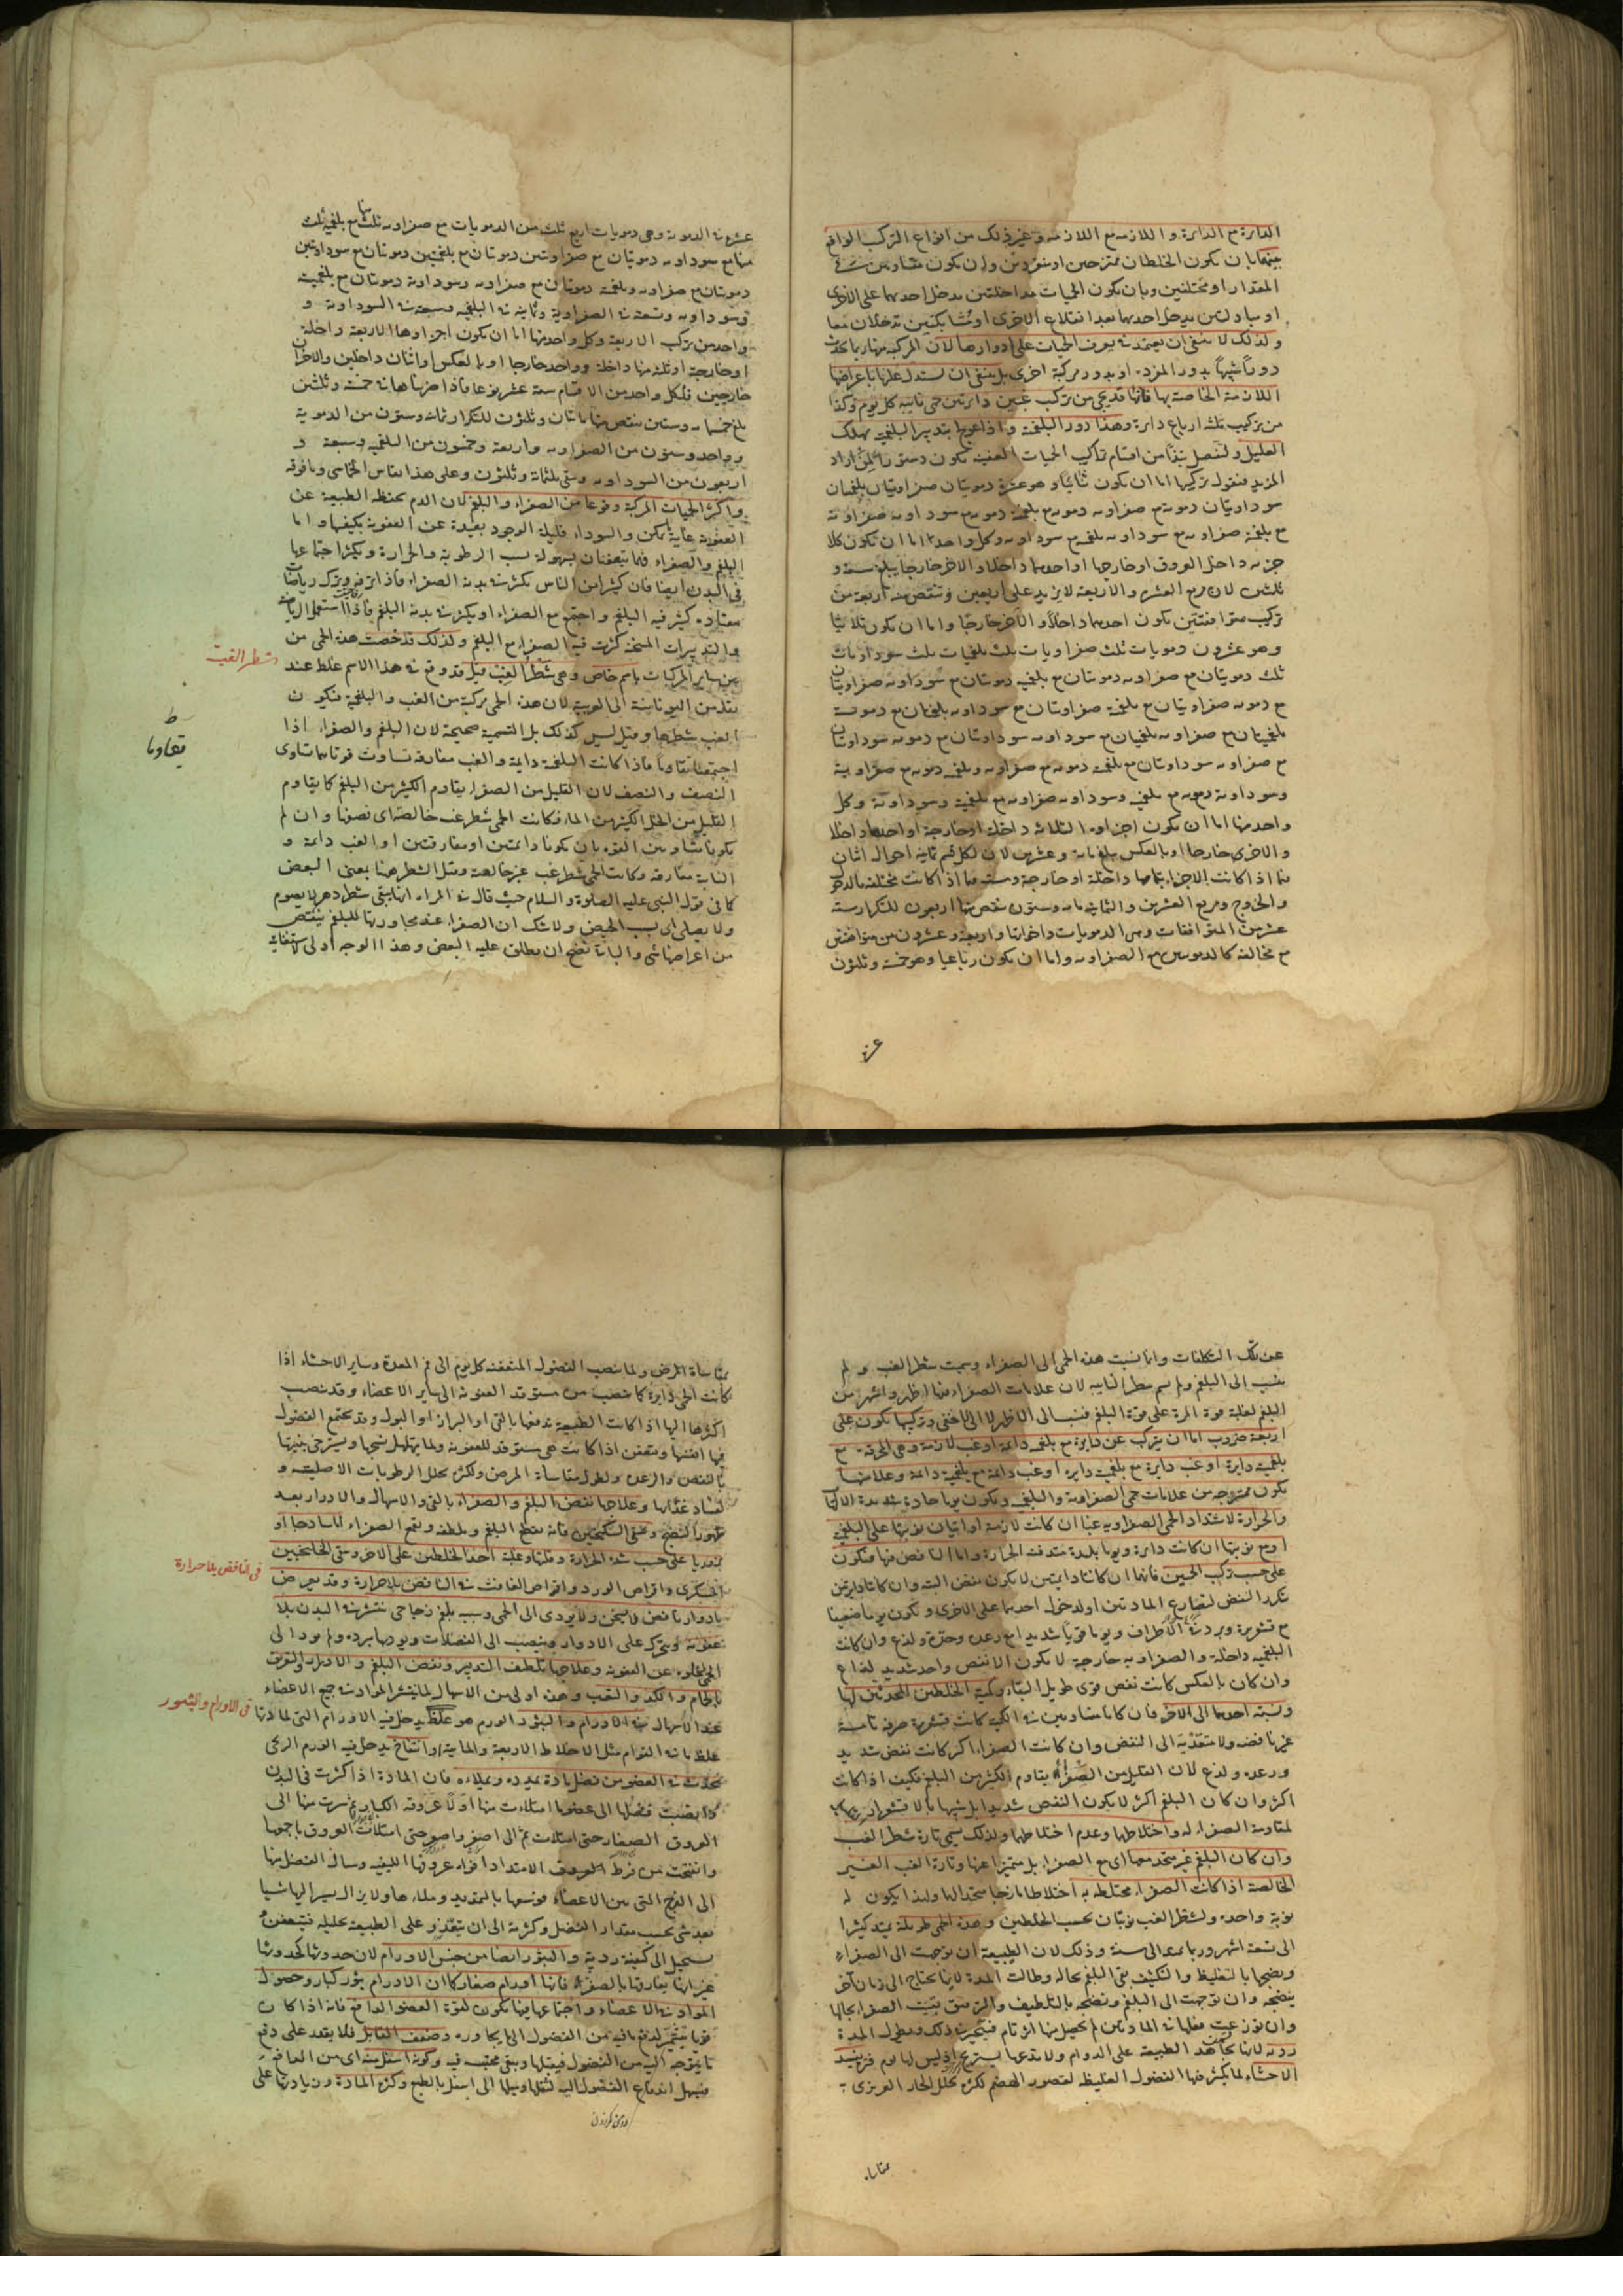 الدائرة مع الدائرة و اللازمة مع اللازمة وغير ذلك من انواع التركيب الواقع
بينهما بان يكون الخلطان ممتزجين او منفردين وان يكون متساويين في
المقدار او مختلفين وبان يكون الحميات متداخلتين يدخل احديهما على الاخرى
او متبادلتين يدخل احديهما بعد اقلاع الاخرى او متشابكتين تدخلان معا
ولذلك لا ينبغي ان يعتمد في تعرف الحميات على ادوارها لان المركبة منها ربما يحدث
دورا شبيها بدور المفردة او بدور مركبة اخرى بل ينبغي ان يستدل عليها باعراضها
اللازمة الخاصة بها فانها قد يجئ من تركيب غبين دائرتين حمى نائبة كل يوم وكذا
من تركيب ثلثة ارباع دائرة وهذا دور البلغمية واذا عولجا بتدبير البلغمية يهلك
العليل ولنفصل نبذا من اقسام تراكيب الحميات العفنية يكون دستورا لمن اراد
المزيد فنقول تركيبها اما ان يكون ثنائيا وهو عشرة دمويتان صفراويتان بلغميتان
سوداويتان دموية مع صفراوية دموية مع بلغمية دموية مع سوداوية صفراوية
مع بلغمية صفراوية مع سوداوية بلغمية مع سوداوية وكل واحد اما ان يكون كلا
جزئيه داخل العروق او خارجها او احدهما داخلا والاخر خارجا يبلغ ستة و
ثلثين لان مربع العشرة والاربعة لا يزيد على اربعين وينقص منه اربعة من
تركيب متوافقتين يكون احديهما داخلا والاخر خارجا واما ان يكون ثلاثيا
وهو عشرون دمويات ثلث صفراويات ثلث بلغميات ثلث سوداويات
ثلث دمويتان مع صفراوية دمويتان مع بلغمية دمويتان مع سوداوية صفراويتان
مع دموية صفراويتان مع بلغمية صفراويتان مع سوداوية بلغميتان مع دموية
بلغميتان مع صفراوية بلغميتان مع سوداوية سوداويتان مع دموية سوداويتان
مع صفراوية سوداويتان مع بلغمية دموية مع صفراوية وبلغمية دموية مع صفراوية
وسوداوية دموية مع بلغمية وسوداوية صفراوية مع بلغمية وسوداوية وكل
واحد منها اما ان يكون اجزاؤه الثلاثة داخلة او خارجة او احدها داخلا
والاخرى خارجا او بالعكس يبلغ مائة وعشرين لان لكل قسم ثمانية احوال اثنان
فيما اذا كانت الاجزاء بتمامها داخلة او خارجة وستة فيما اذا كانت مختلفة بالدخول
والخروج ومربع العشرين والثمانية مائة وستون ينقص منها اربعون للتكرار ستة
عشر من المتوافقات وهي الدمويات واخواتها واربعة وعشرون من متوافقتين
مع مخالفة كالدمويتين مع الصفراوية واما ان يكون رباعيا وهو خمسة وثلثون
عشرة
عشرة في الدموية وهي دمويات اربع ثلث من الدمويات مع صفراوية ثلث منها مع بلغمية ثلث
منها مع سوداوية دمويتان مع صفراويتين دمويتان مع بلغميتين دمويتان مع سوداويتين
دمويتان مع صفراوية وبلغمية دمويتان مع صفراوية وسوداوية دمويتان مع بلغمية
وسوداوية وتسعة في الصفراوية وثمانية في البلغمية وسبعة في السوداوية و
واحد من تركيب الاربعة وكل واحد منها اما ان يكون اجزاؤها الاربعة داخلة
او خارجة او ثلثة منها داخلة وواحد خارجا او بالعكس او اثنان داخلين والاخران
خارجين فلكل واحد من الاقسام ستة عشر نوعا فاذا ضربناها في خمسة وثلثين
بلغ خمسمائة وستين ينقص منها مائتان وثلثون للتكرار ثمانية وستون من الدموية
وواحد وستون من الصفراوية واربعة وخمسون من البلغمية وسبعة و
اربعون من السوداوية وبقي ثلثمائة وثلثون وعلى هذا القياس الخماسي وما فوقه
واكثر الحميات المركبة وقوعا من الصفراء والبلغم لان الدم يحفظه الطبيعة عن
العفونة غاية ما يمكن والسوداء قليلة الوجود بعيدة عن العفونة بكيفيتها واما
البلغم والصفراء فهما يتعفنان بسهولة بسبب الرطوبة والحرارة ويكثر اجتماعهما
في البدن ايضا فان كثيرا من الناس يكثر في بدنه الصفراء فاذا ترفه وترك رياضات
معتادة كثر فيه البلغم واجتمع مع الصفراء او يكثر في بدنه البلغم فاذا استعمل الرياضة
والتدبيرات المسخنة كثرت فيه الصفراء مع البلغم ولذلك قد خصت هذه الحمى من
بين ساير المركبات باسم خاص وهي شطر الغب قيل قد وقع في هذا الاسم غلط عند
شطر الغب
نقله من اليونانية الى العربية لان هذه الحمى مركبة من الغب والبلغمية فيكون
الغب شطرها وقيل ليس كذلك بل التسمية صحيحة لان البلغم والصفراء اذا
اجتمعا تقاوما فاذا كانت البلغمية دائمة والغب مفارقة تساوت قوتاهما تساوي
تقاوما
النصف والنصف لان القليل من الصفراء يقاوم الكثير من البلغم كما يقاوم
القليل من الخل الكثير من الماء فكانت الحمى شطر غب خالصة اي نصفها وان لم
يكونا متساويين في القوة بان يكونا دائمتين او مفارقتين او الغب دائمة و
النائبة مفارقة وكانت الحمى شطر غب غير خالصة وقيل الشطر ههنا بمعنى البعض
كما في قول النبي عليه الصلوة والسلام حيث قال في المراة انها تبقى شطر دهرها لا يصوم
ولا يصلي اي بسبب الحيض ولا شك ان الصفراء عند مجاورتها للبلغم ينتقص
من اعراضها شئ والباقي يصح ان يطلق عليه البعض وهذا الوجه اولى لاستغنائه
عن تلك التكلفات وانما نسبت هذه الحمى الى الصفراء وسميت شطر الغب ولم
ينسب الى البلغم ولم يسم شطر النائبة لان علامات الصفراء فيها اظهر واشهر من
البلغم لغلبة قوة المرة على قوة البلغم فنسب الى الاظهر لا الى الاخفى وتركيبها يكون على
اربعة ضروب اما ان يتركب عن دايرة مع بلغمية دائمة او غب لازمة وهي المحرقة مع
بلغمية دايرة او غب دايرة مع بلغمية دايرة او غب دائمة مع بلغمية دائمة وعلامتها
يكون ممتزجة من علامات حمى الصفراوية والبلغمية ويكون يوما حادة شديدة الالتهاب
والحرارة لاشتداد الحمى الصفراوية غبا ان كانت لازمة او اتيان نوبتها على البلغمية
او مع نوبتها ان كانت دايرة ويوما بليدة متدفنة الحرارة واما النافض فيها فيكون
على حسب تركب الحميين فانهما ان كانتا دائمتين لا يكون نفض البتة وان كانتا دايرتين
يتكرر النفض لتصارع المادتين او لدخول احديهما على الاخرى ويكون يوما ضعيفا
مع قشعريرة وبرد في الاطراف ويوما قويا شديدا مع رعدة وحدة ولذع وان كانت
البلغمية داخلة والصفراوية خارجة لا يكون الا نفض واحد شديد لذاع
وان كان بالعكس كانت نفض قوى طويل البقاء وكمية الخلطين المحدثين لها
ونسبة احدهما الى الاخر فان كانا متساويين في الكمية كانت قشعريرة صرفة تامة
غير ناقصة ولا متعدية الى النفض وان كانت الصفراء اكثر كانت نفض شديد
ورعدة ولذع لان القليل من الصفراء يقاوم الكثير من البلغم فكيف اذا كانت
اكثر وان كان البلغم اكثر لا يكون النفض شديدا بل شبيها بالاقشعرار
لمقاومة الصفراء له واختلاطها وعدم اختلاطها ولذلك يسمى تارة شطر الغب
وان كان البلغم غير متحد معها اي مع الصفراء بل متميزا عنها وتارة الغب الغير
الخالصة اذا كانت الصفراء مختلطة به اختلاطا مازجا متحدا لها ولهذا يكون له
نوبة واحدة ولشطر الغب نوبتان بحسب الخلطين وهذه الحمى طويلة يمتد كثيرا
الى تسعة اشهر وربما يمتد الى سنة وذلك لان الطبيعة ان توجهت الى الصفراء
ونضجها بالتغليظ والتكثيف بقي البلغم بحاله وطالت المدة لانها يحتاج الى زمان آخر
ينضجه وان توجهت الى البلغم ونضجه بالتلطيف والترقيق بقيت الصفراء بحالها
وان توزعت فعلها في المادتين لم يحصل منها اثر تام فيتحير في ذلك ويطول المدة
ردية لانها تجاهد الطبيعة على الدوام ولا تدعها يستريح اذ ليس لها يوم فترة يفسد
الاحشاء لما يكثر فيها الفضول الغليظة لقصور الهضم لكثرة تحلل الحار الغريزي
مقاساة
بمقاساة المرض ولما ينصب الفضول المتعفنة كل يوم الى فم المعدة وساير الاحشاء اذا
كانت الحمى دايرة كما ينصب من مستوقد العفونة الى ساير الاعضاء وقد ينصب
اكثرها اليها اذا كانت الطبيعة تدفعها بالقئ او البراز او البول وقد يجتمع الفضول
فيها انفسها ويتعفن اذا كانت هي مستوقد للعفونة ولما يتهلهل نسجها ويسترخي بنيتها
بالنفض والرعدة ولطول مقاساة المرض ولكثرة تحلل الرطوبات الاصلية و
لفساد غذائها وعلاجها نفض البلغم والصفراء بالقئ والاسهال والادرار بعد
ظهور النضج وبسقي السكنجبين فانه يقطع البلغم ويلطفه ويقمع الصفراء اما ساذجا او
بزوريا على حسب شدة الحرارة وقلتها وغلبة احد الخلطين على الاخر وسقي الجلنجبين
السكري واقراص الورد واقراص الغافث في النافض بلا حرارة وقد يعرض
في النافض بلا حرارة
بادوار نافض لا يسخن ولا يؤدى الى الحمى وسببه بلغم زجاجي ينتشر في البدن بلا
عفونة ويتحرك على الادوار وينصب الى العضلات ويؤذيها ببرده ولم يؤد الى
الحمى لخلوه عن العفونة وعلاجها تلطيف التدبير ونفض البلغم والادرار والتعريق
بالحمام والكد والتعب وهذه اولى من الاسهال لما ينتشر المواد في جميع الاعضاء
عند الاسهال في الاورام والبثور الورم هو غلظ يدخل فيه الاورام التي لمادتها
في الاورام والبثور
غلظ ما في القوام مثل الاخلاط الاربعة والمائية وانتفاخ يدخل فيه الورم الريحي
يحدث في العضو من فضل مادة يمدده ويملأه فان المادة اذا كثرت في البدن
وانصبت فضلها الى عضو ما امتلات منها اولا عروقه الكبار ثم سرت منها الى
العروق الصغار حتى امتلات ثم الى اصغر واصغر حتى امتلات العروق باجمعها
وانفتحت من فرط العروق الامتداد افواه عروقها الليفية وسال الفضل منها
الى الفرج التي بين الاعضاء فوسعها بالتمديد وملاءها ولا يزال يسير اليها شيئا
بعد شئ بحسب مقدار الفضل وكثرته الى ان يتعذر على الطبيعة تحليله فيتعفن و
يستحيل الى كيفية ردية والبثور ايضا من جنس الاورام لان حدوثها كحدوثها
غير انها يفارقها بالصغر فانها اورام صغار كما ان الاورام بثور كبار وحصول
المواد في الاعضاء واجتماعها فيها يكون لقوة العضو الدافع فانه اذا كان
قويا يتشمر لدفع ما فيه من الفضول الى ما يجاوره وضعف القابل فلا يقدر على دفع
ما يتوجه اليه من الفضول فيقبلها ويبقى محتبسة فيه وكونه اسفل منه اي من الدافع
فيسهل اندفاع الفضول اليه لثقلها وميلها الى اسفل بالطبع وكثرة المادة وزيادتها على